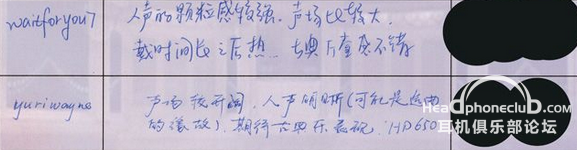 waitforyou7
人声的颗粒感较强。声场比较大。
戴时间长之后热... 感不错
yuriwayne
声场较开阔,人声明晰(可能是选曲
的缘故)、期待古典乐表现. HD650
Headphoneclub.com
耳机俱乐部论坛